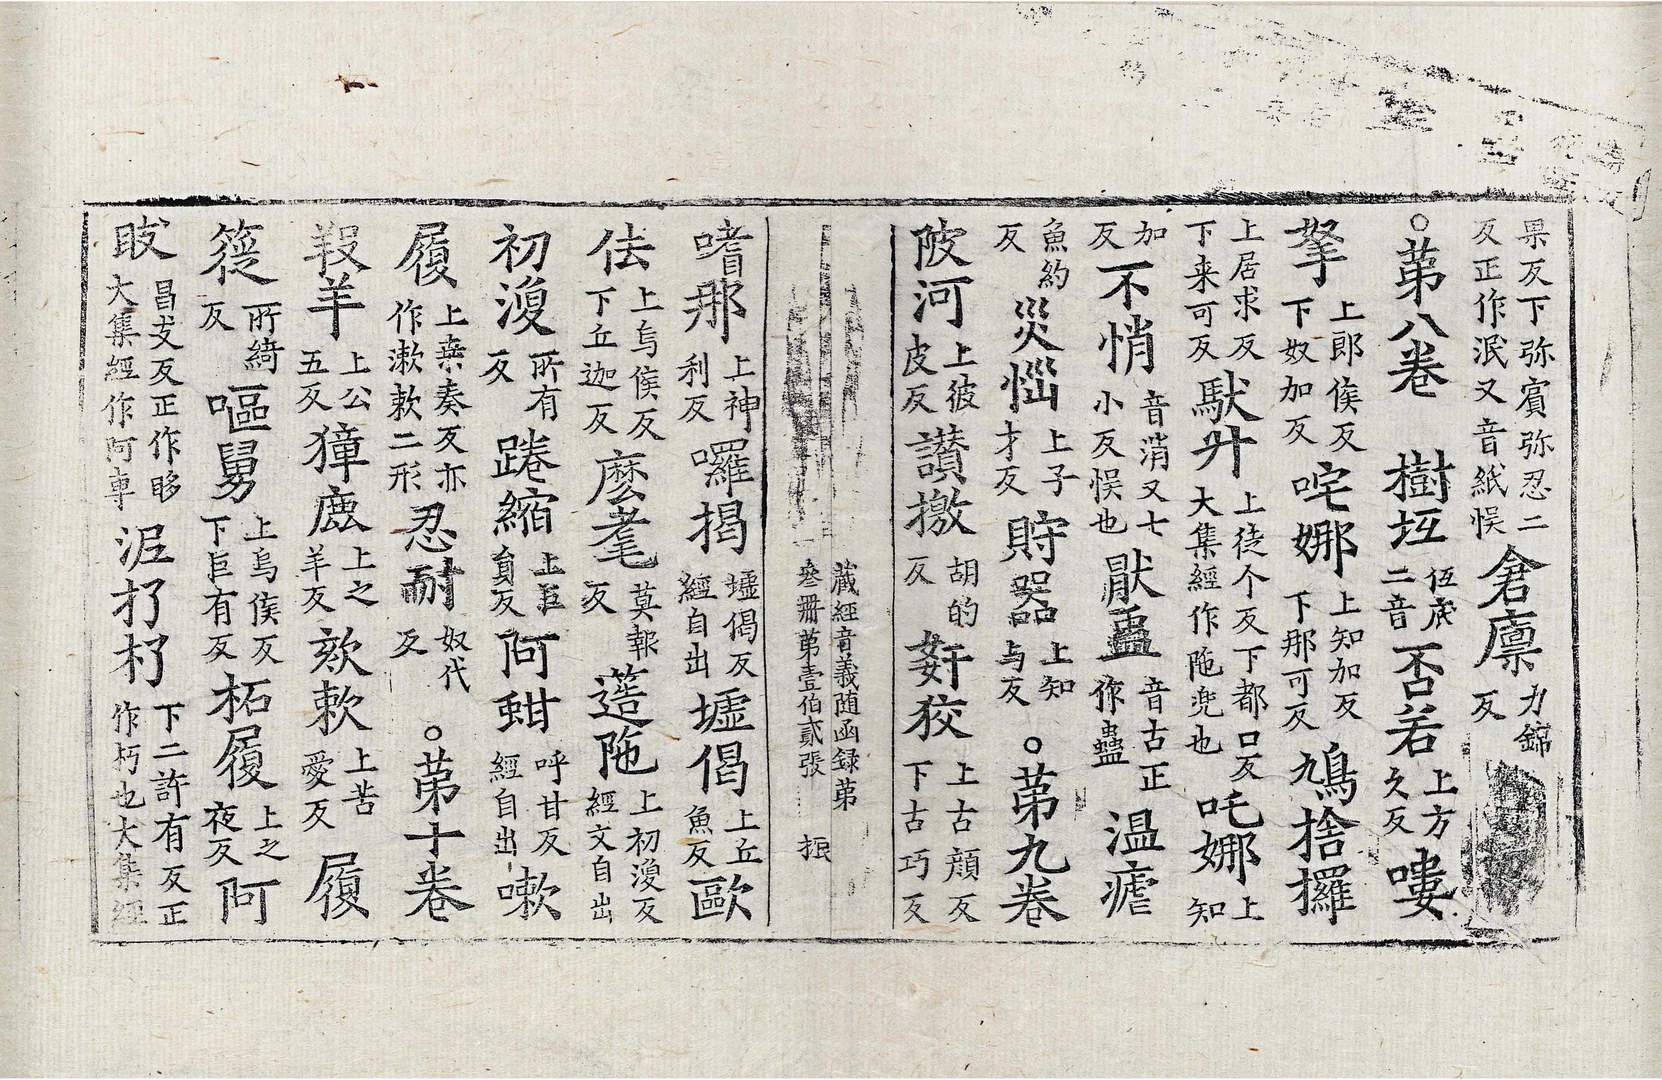 果反下弥賔弥忍二反正作泯又音紙悮倉廩力錦反
○苐八卷 樹坘伍底二音否若上方久反嘍
拏上郎侯反下奴加反咤娜上知加反下那可反鳩捨攞
上居求反下来可反䭾升上徒个反下都口反大集經作陁兜也吒娜上知
加反不悄音消又七小反悮也猒蛊音古正作蠱温瘧
魚約反災惱上子才反貯器上知与反 ○苐九卷
陂河上彼皮反讃擞胡的反姧狡上古顔反下古巧反
藏經音義随函録苐叁冊苐壹伯貳張 振
嗜那上神利反囉揭墟偈反經自出墟偈上丘魚反歐
佉上烏侯反下丘迦反麽耄莫報反蒫陁上初溲反經文自出
初溲所有反踡縮上巨負反阿蚶呼甘反經自出嗽
履上桒奏反亦作漱欶二形忍耐奴代反 ○苐十卷
羖羊上公五反獐鹿上之羊反欬欶上苦愛反履
簁所綺反嘔舅上烏侯反下巨有反柘履上之夜反阿
䟦昌支反正作眵大集經作阿車泥扝杇下二許有反正作朽也大集經